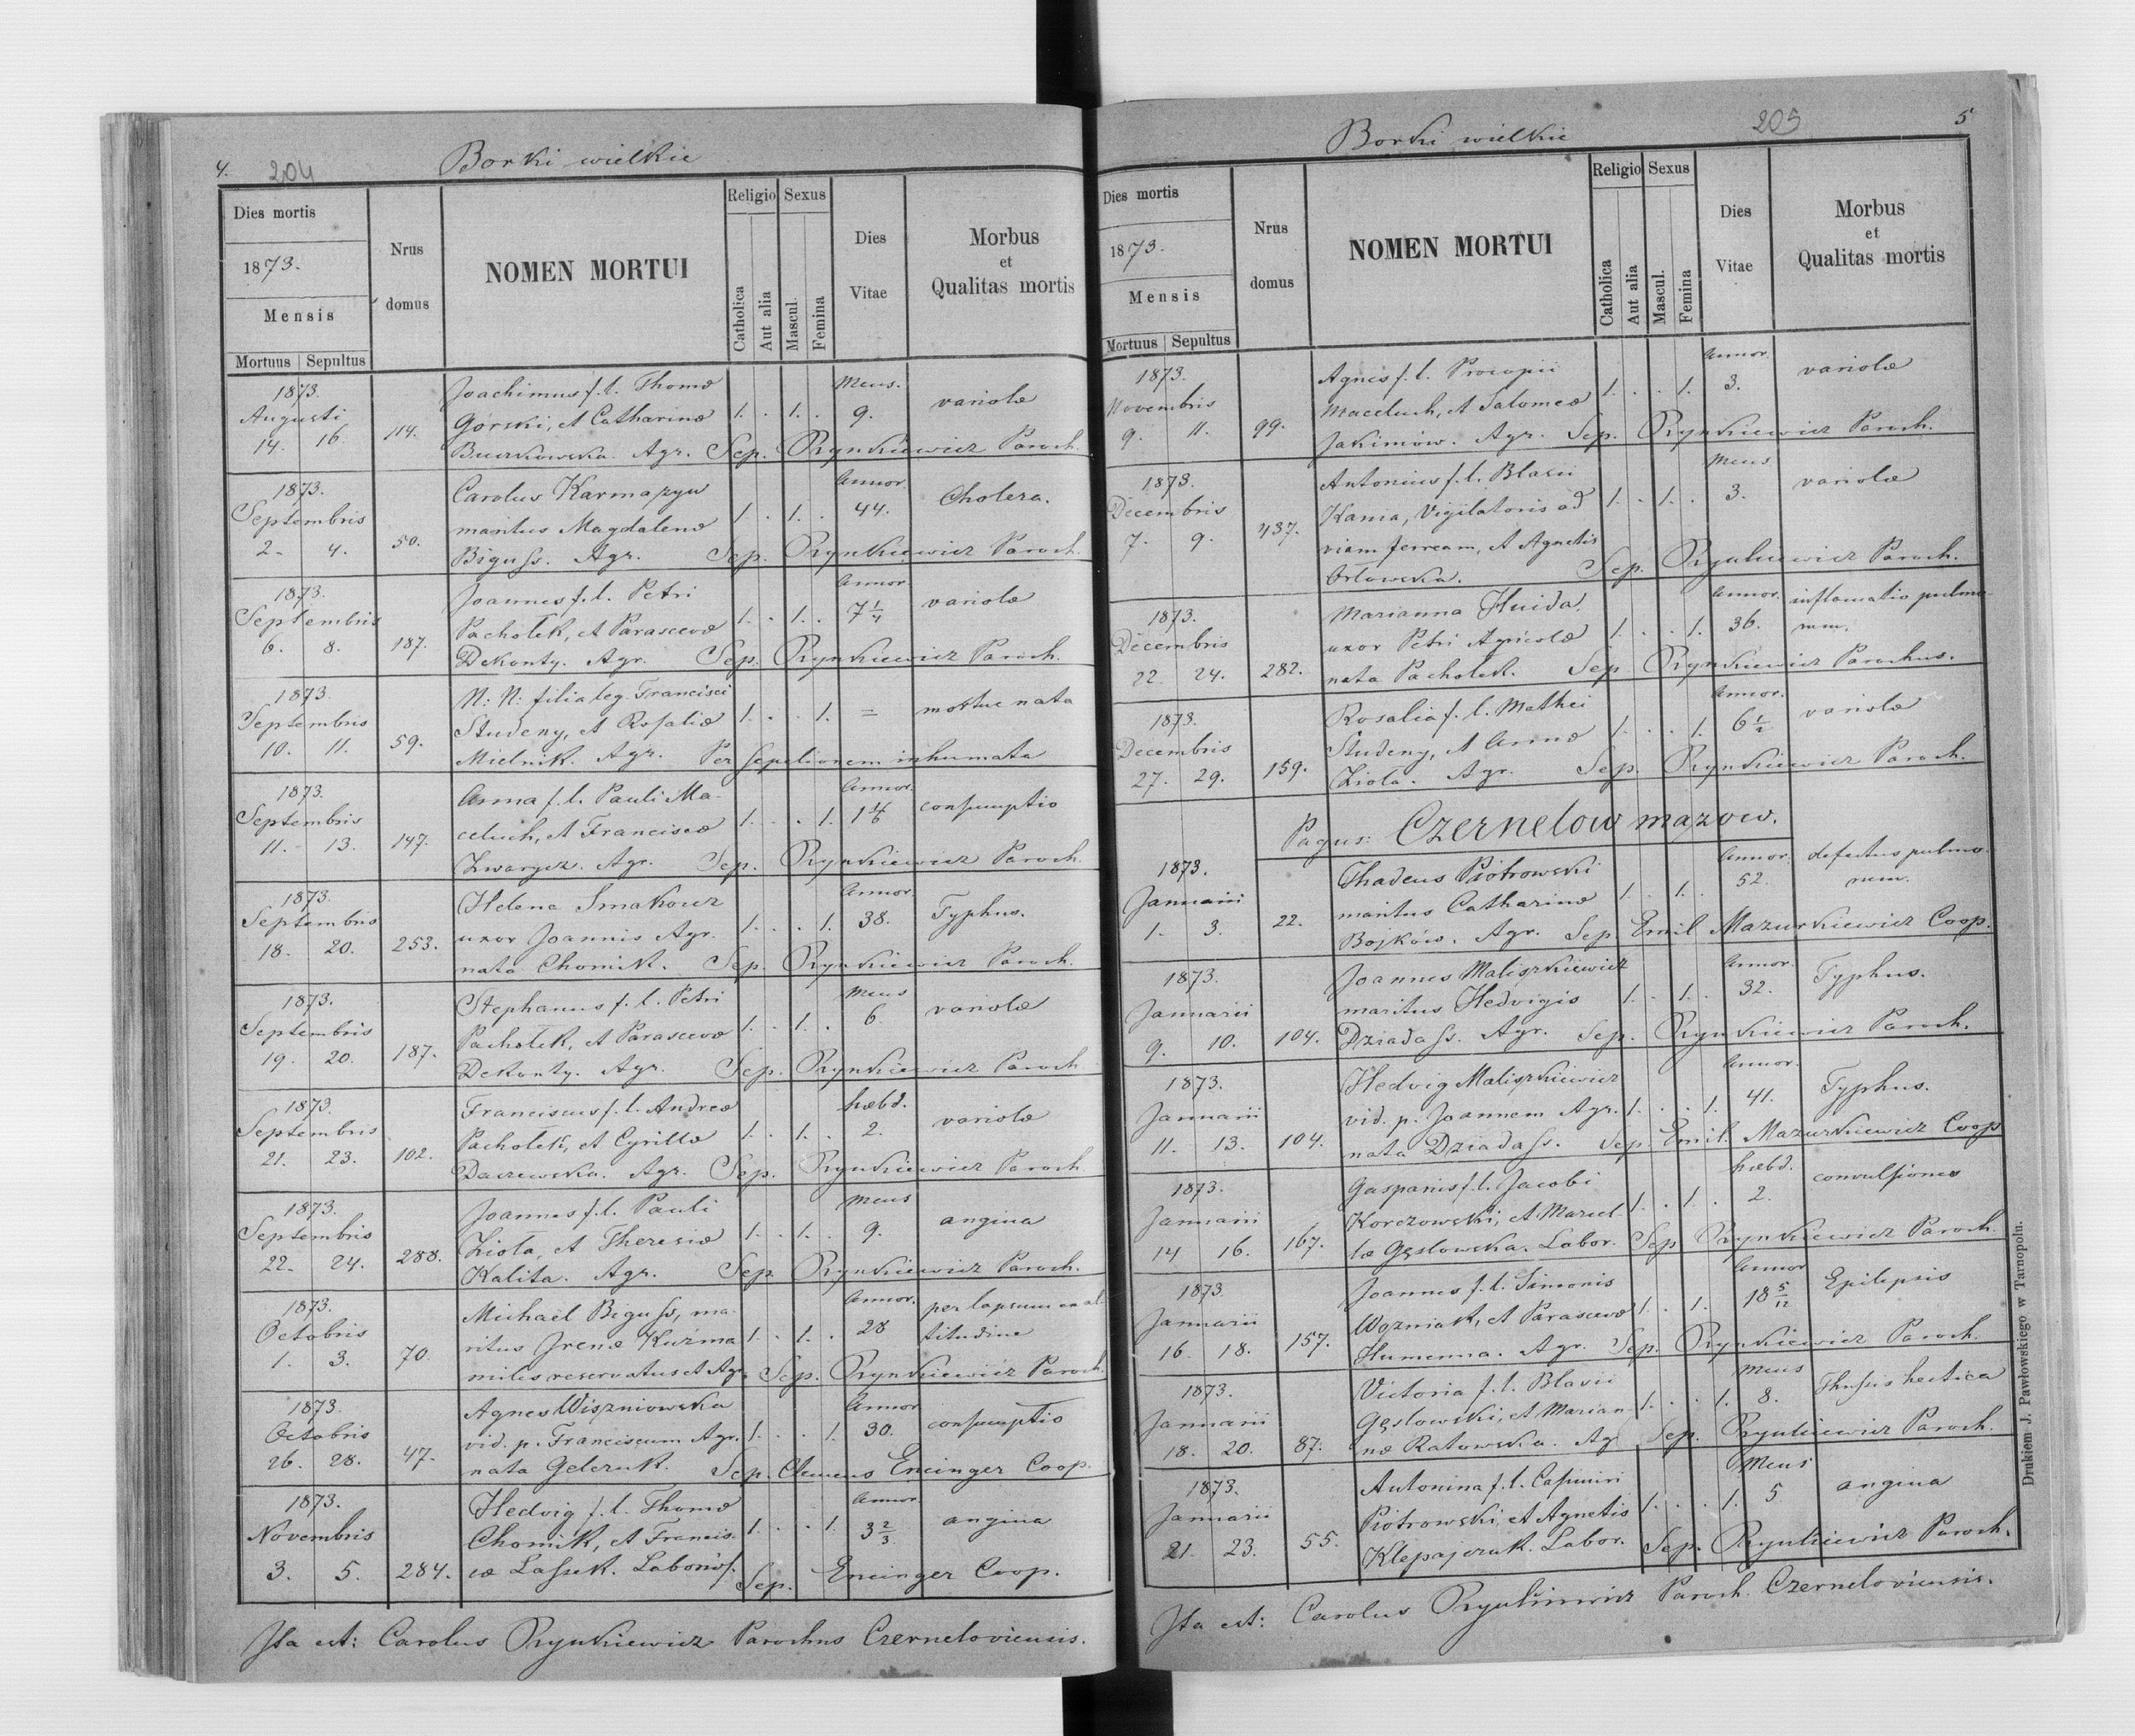 4. 204 Borki wielkie
Dies mortis
1873.
Mensis
Mortuus Sepultus
Nrus domus
NOMEN MORTUI
Religio Sexus
Catholica Aut alia Mascul. Femina
Dies Vitae
Morbus et Qualitas mortis
1873. Joachimus f. l. Thomæ Mens.
Augusti Górski, et Catharinæ 1. . 1. . 9. variolæ
14. 16. 114. Buczkowska. Agr. Sep. Rynkiewicz Paroch.
1873. Carolus Karmazyn Annor.
Septembris maritus Magdalenæ 1. . 1. . 44. Cholera.
2. 4. 50. Biguss. Agr. Sep. Rynkiewicz Paroch.
1873. Joannes f. l. Petri Annor.
Septembris Pacholek, et Parascevæ 1. . 1. . 7 1/4 variolæ
6. 8. 187. Dekonty. Agr. Sep. Rynkiewicz Paroch.
1873. N: N: filia leg. Francisci
Septembris Studeny, et Rosaliæ 1. . . 1. = mortue nata
10. 11. 59. Mielnik. Agr. Per sepelionem inhumata
1873. Anna f. l. Pauli Ma- Annor.
Septembris celuch, et Franciscæ 1. . . 1. 1 1/6 consumptio
11. 13. 147. Zwarycz. Agr. Sep. Rynkiewicz Paroch.
1873. Helena Smakouz Annor.
Septembris uxor Joannis Agr. 1. . . 1. 38. Typhus.
18. 20. 253. nata Chomik. Sep. Rynkiewicz Paroch.
1873. Stephanus f. l. Petri Mens
Septembris Pacholek, et Parascevæ 1. . 1. . 6 variolæ
19. 20. 187. Dekonty. Agr. Sep. Rynkiewicz Paroch
1873. Franciscus f. l. Andreæ hæbd.
Septembris Pacholek, et Cyrillæ 1. . 1. . 2. variolæ
21. 23. 102. Daczewska. Agr. Sep. Rynkiewicz Paroch
1873. Joannes f. l. Pauli Mens
Septembris Ziola, et Theresiæ 1. . 1. . 9. angina
22. 24. 288. Kalita. Agr. Sep. Rynkiewicz Paroch.
1873. Michaël Beguss, ma- Annor. per lapsum ex al-
Octobris ritus Irenæ Kuzma 1. . 1. . 28 titudine
1. 3. 70. miles reservatus et Agr. Sep. Rynkiewicz Paroch.
1873. Agnes Wiszniowska Annor
Octobris vid. p. Franciscum Agr. 1. . . 1. 30. consumptio
26. 28. 47. nata Gelezuk. Sep. Clemens Encinger Coop.
1873. Hedvig f. l. Thomæ Annor.
Novembris Chomik, et Francis- 1. . . 1. 3 2/3 angina
3. 5. 284. cæ Lassek. Laborios. Sep. Encinger Coop.
Ita est: Carolus Rynkiewicz Parochus Czerneloviensis.
Borki wielkie 205 5
Dies mortis
1873.
Mensis
Mortuus Sepultus
Nrus domus
NOMEN MORTUI
Religio Sexus
Catholica Aut alia Mascul. Femina
Dies Vitae
Morbus et Qualitas mortis
1873. Agnes f. l. Procopii Annor.
Novembris Maceluch, et Salomeæ 1. . . 1. 3. variolæ
9. 11. 99. Jakimów. Agr. Sep. Rynkiewicz Paroch.
1873. Antonius f. l. Blasii Mens
Decembris Kania, Vigilatoris ad 1. . 1. . 3. variolæ
7. 9. 437. viam ferream, et Agnetis
Orlowska. Sep. Rynkiewicz Paroch.
1873. Marianna Huida Annor. inflamatio pulmo-
Decembris uxor Petri Agricolæ 1. . . 1. 36. num.
22. 24. 282. nata Pacholek. Sep Rynkiewicz Parochus.
1873. Rosalia f. l. Mathei Annor.
Decembris Studeny, et Annæ 1. . . 1. 6 1/2 variolæ
27. 29. 159. Ziola. Agr. Sep. Rynkiewicz Paroch.
Pagus: Czernelow mazow.
1873. Thadeus Piotrowski Annor. defectus pulmo-
Januarii maritus Catharinæ 1. . 1. . 52. num.
1. 3. 22. Bojków. Agr. Sep Emil Mazurkiewicz Coop.
1873. Joannes Maliszkiewicz Annor.
Januarii maritus Hedvigis 1. . 1. . 32. Typhus.
9. 10. 104. Dziadass. Agr. Sep. Rynkiewicz Paroch.
1873. Hedvig Maliszkiewicz Annor.
Januarii vid. p. Joannem Agr. 1. . . 1. 41. Typhus.
11. 13. 104. nata Dziadass. Sep. Emil Mazurkiewicz Coop
1873. Gasparus f. l. Jacobi hæbd.
Januarii Korczowski, et Marcel- 1. . 1. . 2. convulsiones
14 16. 167. læ Gęslowska. Labor. Sep Rynkiewicz Paroch.
1873. Joannes f. l. Simonis Annor
Januarii Wozniak, et Parascevæ 1. . 1. . 18 5/12 Epilepsis
16. 18. 157. Humenna. Agr. Sep. Rynkiewicz Paroch.
1873. Victoria f. l. Blasii Mens
Januarii Gęslowski, et Marian- 1. . . 1. 8. Thysis hectica
18. 20. 87. næ Ratowska. Ag Sep. Rynkiewicz Paroch.
1873. Antonina f. l. Casimiri Mens
Januarii Piotrowski, et Agnetis 1. . . 1. 5 angina
21. 23. 55. Klepajczuk. Labor. Sep. Rynkiewicz Paroch.
Ita est: Carolus Rynkiewicz Paroch. Czerneloviensis.
Drukiem J. Pawłowskiego w Tarnopolu.